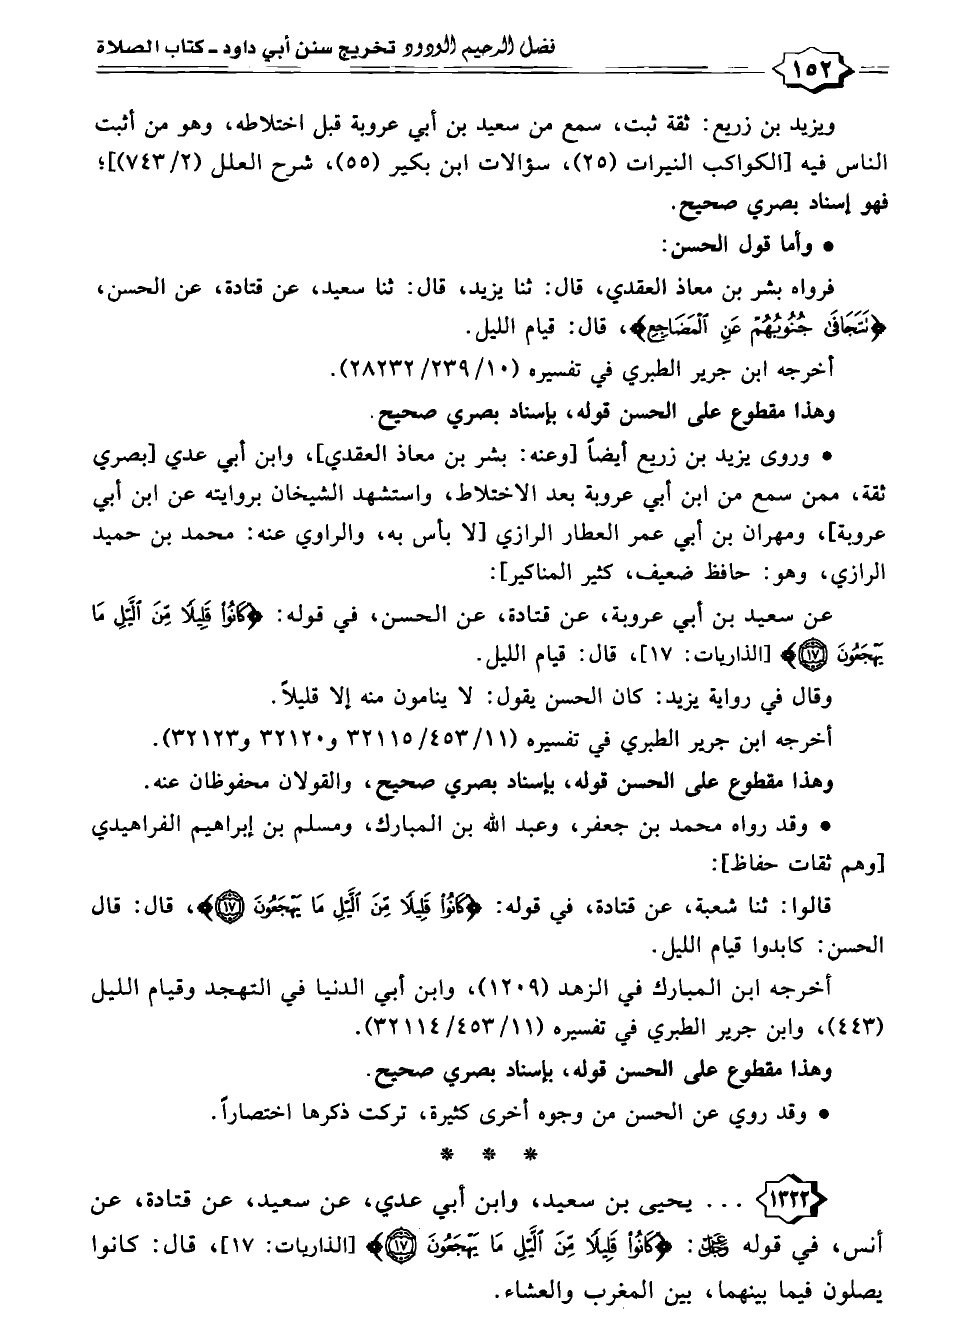 ١٥٢ فضل الرحيم الودود تخريج سنن أبي داود ـ كتاب الصلاة
ويزيد بن زريع: ثقة ثبت، سمع من سعيد بن أبي عروبة قبل اختلاطه، وهو من أثبت
الناس فيه [الكواكب النيرات (٢٥)، سؤالات ابن بكير (٥٥)، شرح العلل (٢/ ٧٤٣)]؛
فهو إسناد بصري صحيح.
• وأما قول الحسن:
فرواه بشر بن معاذ العقدي، قال: ثنا يزيد، قال: ثنا سعيد، عن قتادة، عن الحسن،
﴿نَتَجَافَىٰ جُنُوبُهُمْ عَنِ ٱلْمَضَاجِعِ﴾، قال: قيام الليل.
أخرجه ابن جرير الطبري في تفسيره (١٠/ ٢٣٩/ ٢٨٢٣٢).
وهذا مقطوع على الحسن قوله، بإسناد بصري صحيح.
• وروى يزيد بن زريع أيضاً [وعنه: بشر بن معاذ العقدي]، وابن أبي عدي [بصري
ثقة، ممن سمع من ابن أبي عروبة بعد الاختلاط، واستشهد الشيخان بروايته عن ابن أبي
عروبة]، ومهران بن أبي عمر العطار الرازي [لا بأس به، والراوي عنه: محمد بن حميد
الرازي، وهو: حافظ ضعيف، كثير المناكير]:
عن سعيد بن أبي عروبة، عن قتادة، عن الحسن، في قوله: ﴿كَانُوا۟ قَلِيلًا مِّنَ ٱلَّيْلِ مَا
يَهْجَعُونَ ۝١٧﴾ [الذاريات: ١٧]، قال: قيام الليل.
وقال في رواية يزيد: كان الحسن يقول: لا ينامون منه إلا قليلاً.
أخرجه ابن جرير الطبري في تفسيره (١١/ ٤٥٣/ ٣٢١١٥ و٣٢١٢٠ و٣٢١٢٣).
وهذا مقطوع على الحسن قوله، بإسناد بصري صحيح، والقولان محفوظان عنه.
• وقد رواه محمد بن جعفر، وعبد الله بن المبارك، ومسلم بن إبراهيم الفراهيدي
[وهم ثقات حفاظ]:
قالوا: ثنا شعبة، عن قتادة، في قوله: ﴿كَانُوا۟ قَلِيلًا مِّنَ ٱلَّيْلِ مَا يَهْجَعُونَ ۝١٧﴾، قال: قال
الحسن: كابدوا قيام الليل.
أخرجه ابن المبارك في الزهد (١٢٠٩)، وابن أبي الدنيا في التهجد وقيام الليل
(٤٤٣)، وابن جرير الطبري في تفسيره (١١/ ٤٥٣/ ٣٢١١٤).
وهذا مقطوع على الحسن قوله، بإسناد بصري صحيح.
• وقد روي عن الحسن من وجوه أخرى كثيرة، تركت ذكرها اختصاراً.
* * *
١٣٢٢ ... يحيى بن سعيد، وابن أبي عدي، عن سعيد، عن قتادة، عن
أنس، في قوله ﷻ: ﴿كَانُوا۟ قَلِيلًا مِّنَ ٱلَّيْلِ مَا يَهْجَعُونَ ۝١٧﴾ [الذاريات: ١٧]، قال: كانوا
يصلون فيما بينهما، بين المغرب والعشاء.